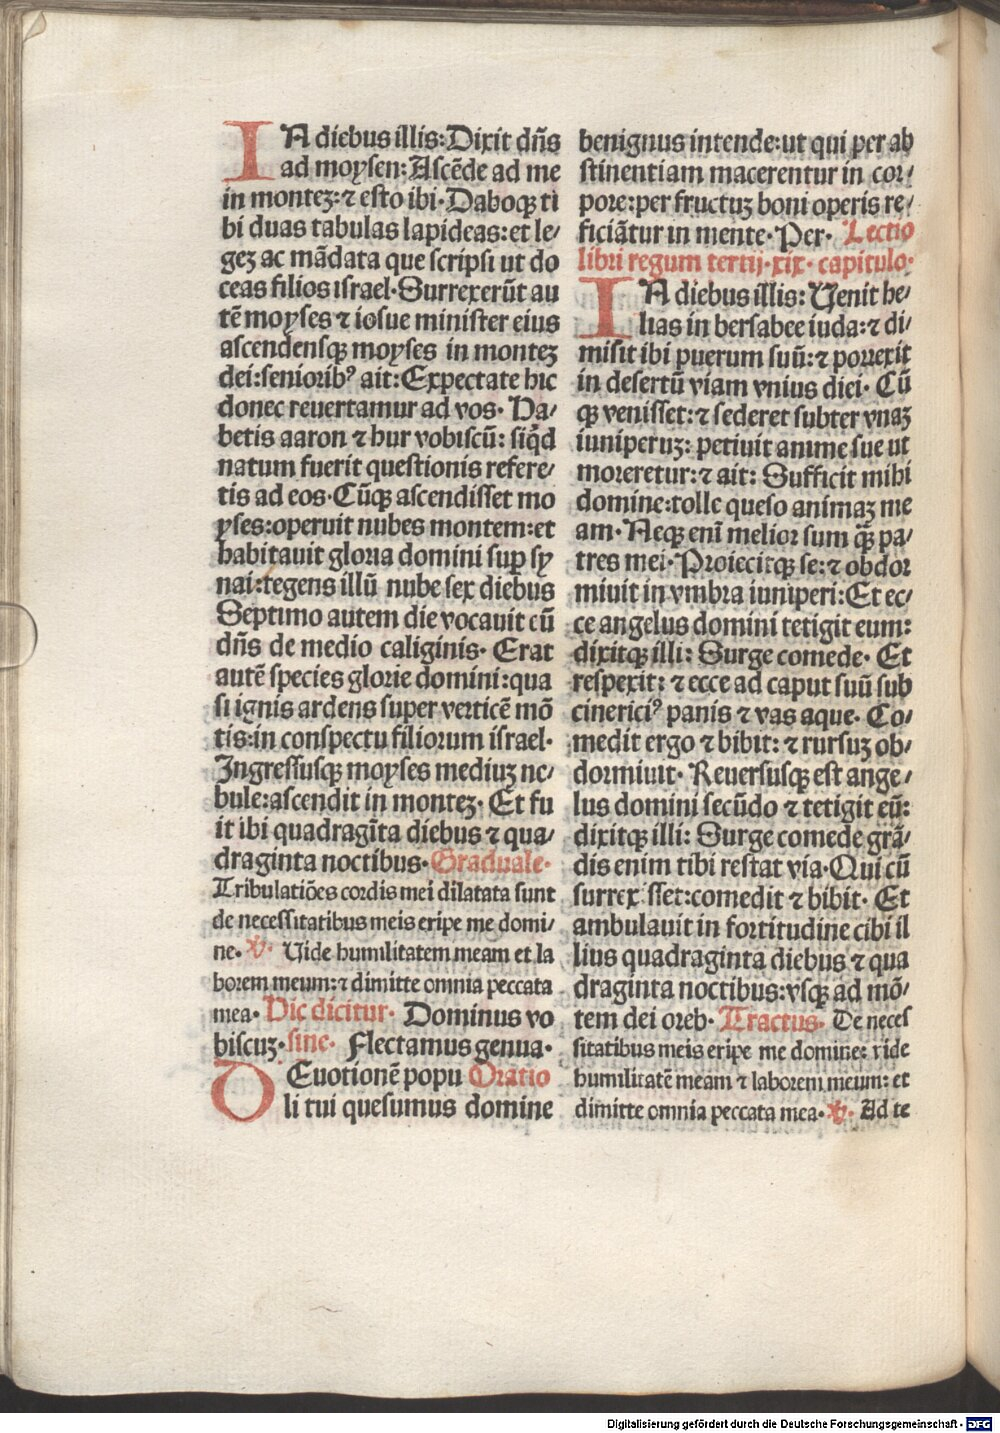 IN diebus illis: Dixit dñs
ad moysen: Ascẽde ad me
in monteꝫ: ⁊ esto ibi. Daboqꝫ ti
bi duas tabulas lapideas: et le⸗
geꝫ ac mãdata que scripsi ut do
ceas filios israel. Surrexerũt au
tẽ moyses ⁊ iosue minister eius
ascendensqꝫ moyses in monteꝫ
dei: seniorib⁹ ait: Expectate hic
donec reuertamur ad vos. Ha⸗
betis aaron ⁊ hur vobiscũ: siq̇d
natum fuerit questionis refere⸗
tis ad eos. Cũqꝫ ascendisset mo
yses: operuit nubes montem: et
habitauit gloria domini suꝑ sy
nai: tegens illũ nube sex diebus
Septimo autem die vocauit cũ
dñs de medio caliginis. Erat
autẽ species glorie domini: qua
si ignis ardens super verticẽ mõ
tis: in conspectu filiorum israel.
Ingressusqꝫ moyses mediuꝫ ne⸗
bule: ascendit in monteꝫ. Et fu
it ibi quadragĩta diebus ⁊ qua⸗
draginta noctibus. Graduale.
Tribulatiões cordis mei dilatata sunt
de necessitatibus meis eripe me domi⸗
ne. ℣. Uide humilitatem meam et la
borem meum: ⁊ dimitte omnia peccata
mea. Hic dicitur. Dominus vo
biscuꝫ. sine. Flectamus genua.
DEuotionẽ popu Oratio
li tui quesumus domine
benignus intende: ut qui per ab
stinentiam macerentur in cor⸗
pore: per fructuꝫ boni operis re⸗
ficiãtur in mente. Per. Lectio
libri regum tertij. xix. capitulo.
IN diebus illis: Uenit he⸗
lias in bersabee iuda: ⁊ di⸗
misit ibi puerum suũ: ⁊ porrexit
in desertũ viam vnius diei. Cũ
qꝫ venisset: ⁊ sederet subter vnaꝫ
iuniperuꝫ: petiuit anime sue ut
moreretur: ⁊ ait: Sufficit mihi
domine: tolle queso animaꝫ me
am. Neqꝫ enĩ melior sum q̃ꝫ pa⸗
tres mei. Proiecitqꝫ se: ⁊ obdor
miuit in vmbra iuniperi: Et ec⸗
ce angelus domini tetigit eum:
dixitqꝫ illi: Surge comede. Et
respexit: ⁊ ecce ad caput suũ sub
cinerici⁹ panis ⁊ vas aque. Co⸗
medit ergo ⁊ bibit: ⁊ rursuꝫ ob⸗
dormiuit. Reuersusqꝫ est ange⸗
lus domini secũdo ⁊ tetigit eũ:
dixitqꝫ illi: Surge comede grã⸗
dis enim tibi restat via. Qui cũ
surrex sset: comedit ⁊ bibit. Et
ambulauit in fortitudine cibi il
lius quadraginta diebus ⁊ qua
draginta noctibus: vsqꝫ ad mõ⸗
tem dei oreb. Tractus. De neces
sitatibus meis eripe me domine: vide
humilitatẽ meam ⁊ laborem meum: et
dimitte omnia peccata mea. ℣. Ad te
Digitalisierung gefördert durch die Deutsche Forschungsgemeinschaft - DFG